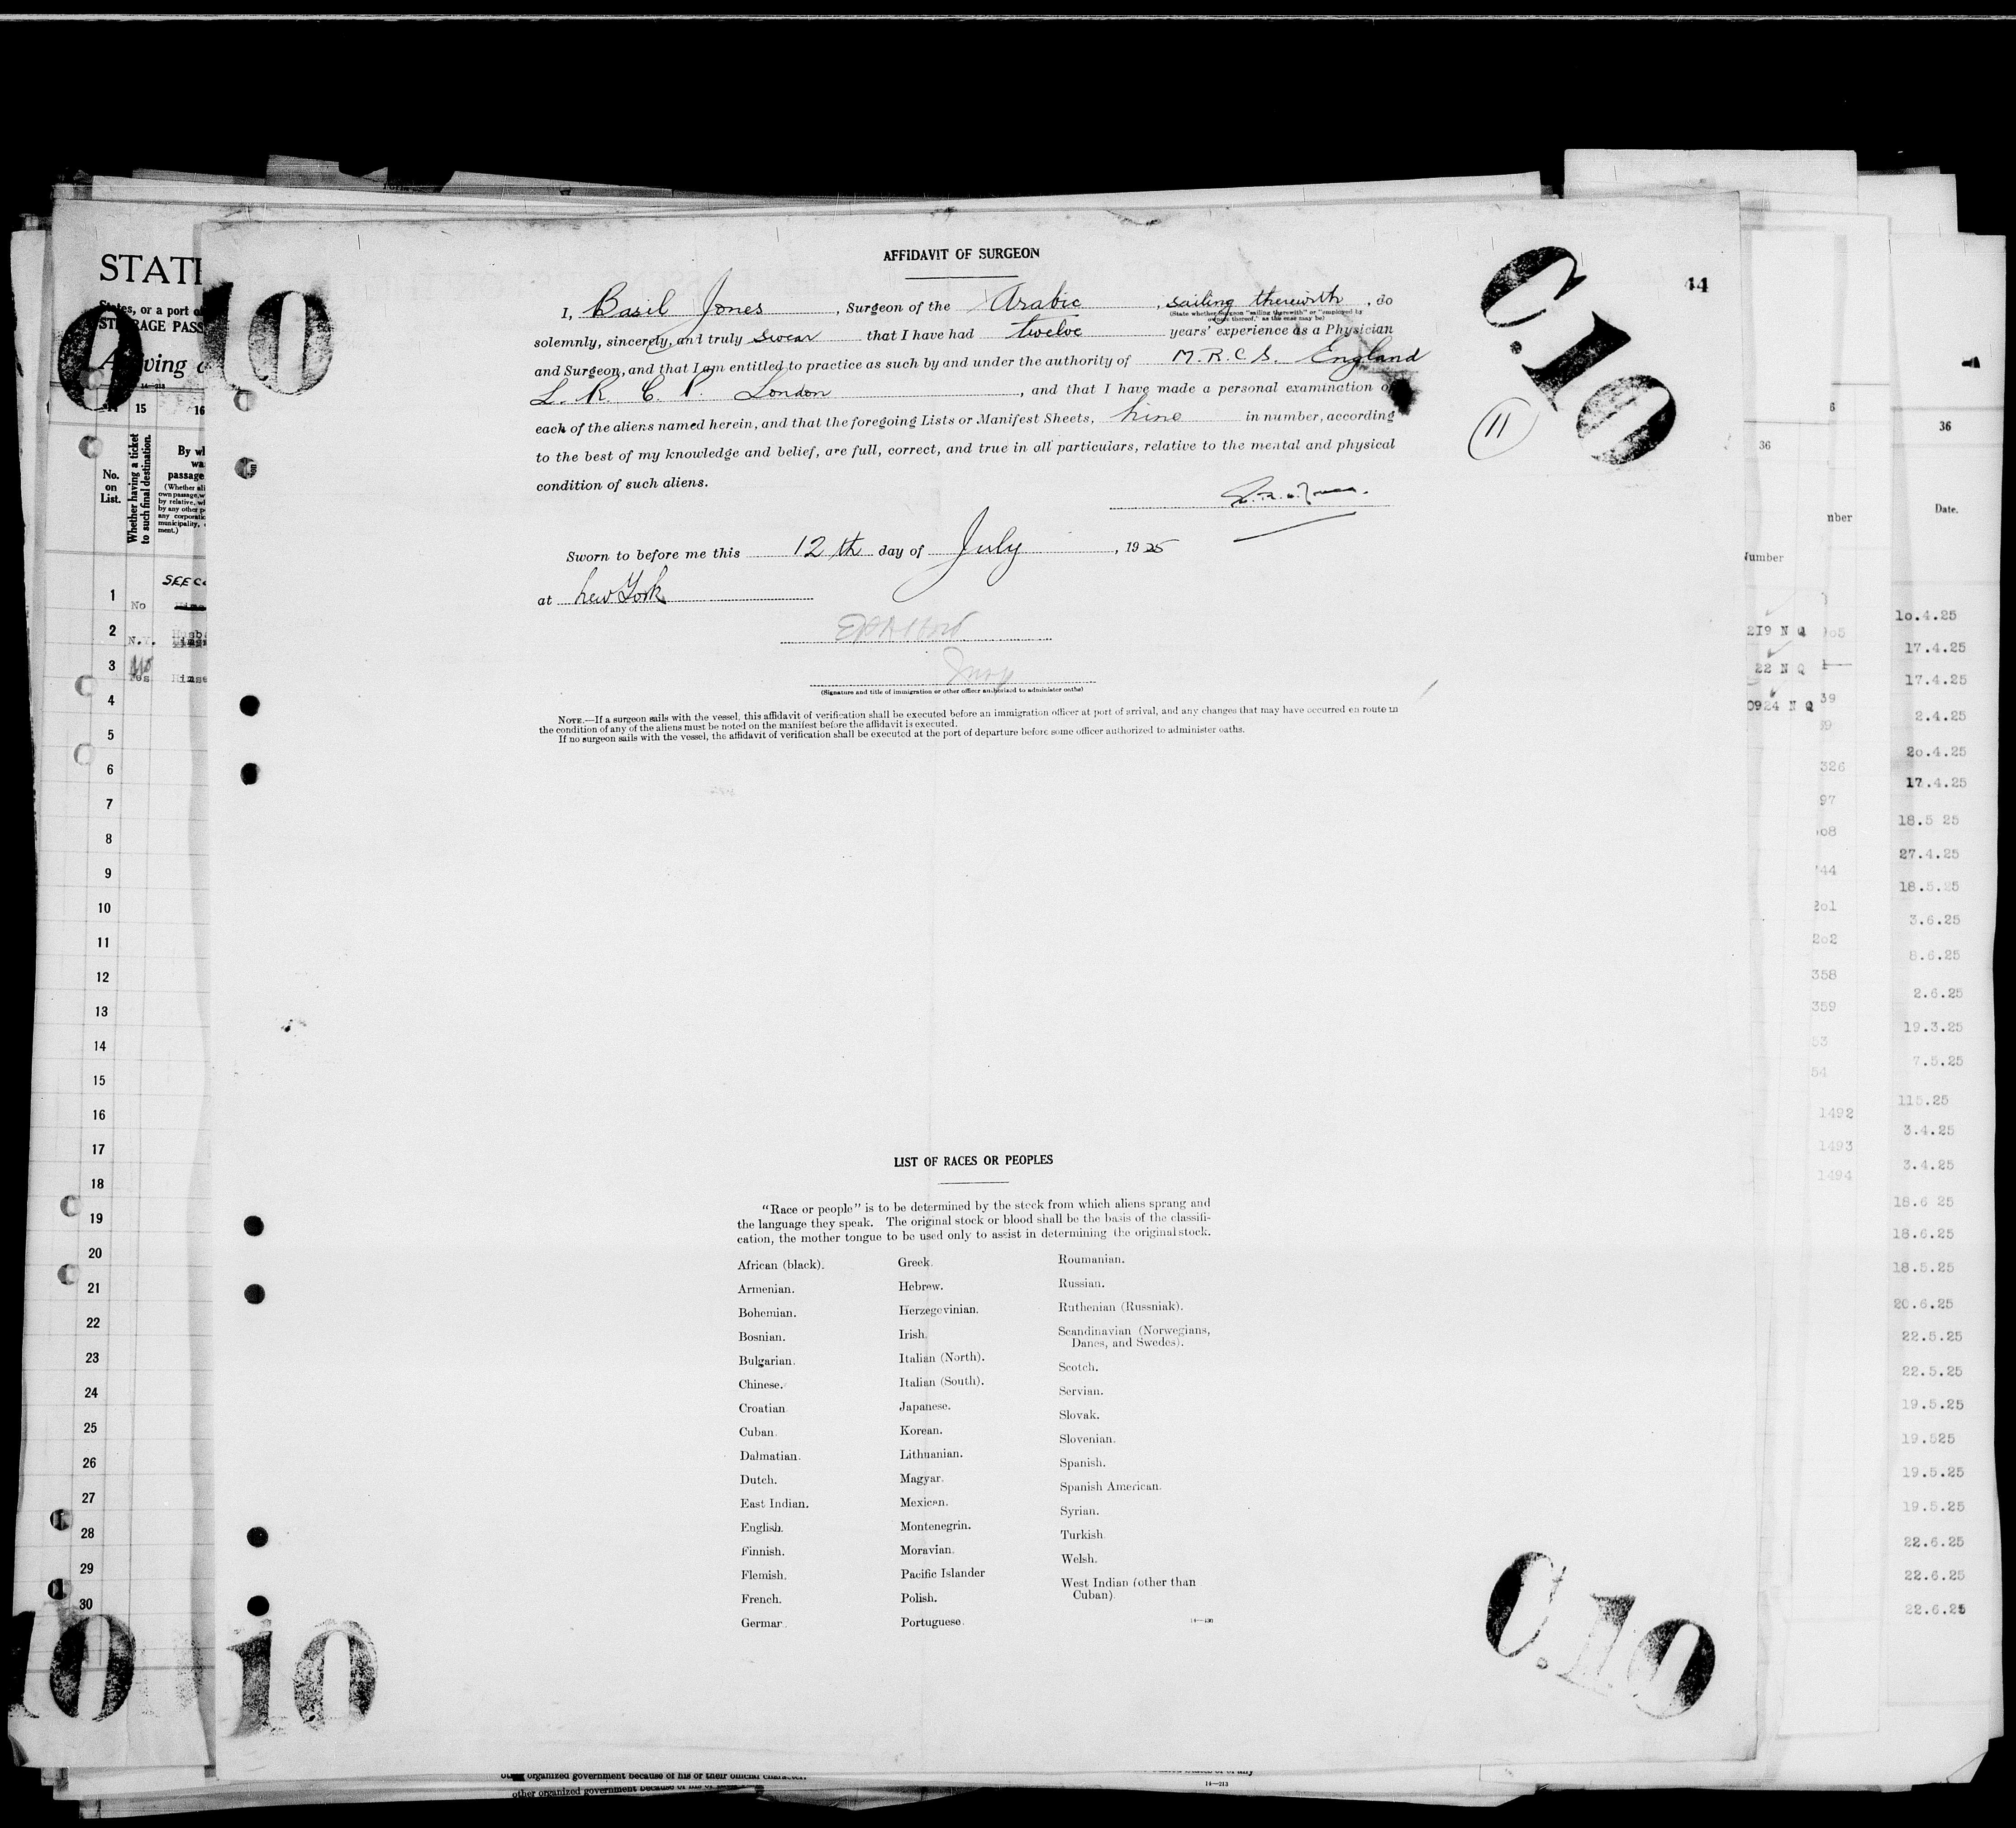 AFFIDAVIT OF SURGEON
44
I, Basil Jones, Surgeon of the Arabic, sailing therewith, do
(State whether Surgeon "sailing therewith" or "employed by
owners thereof," as the case may be)
solemnly, sincerely, and truly swear that I have had twelve years' experience as a Physician
and Surgeon, and that I am entitled to practice as such by and under the authority of M.R.C.S. England
L. R. C. P. London, and that I have made a personal examination of
each of the aliens named herein, and that the foregoing Lists or Manifest Sheets, nine in number, according
to the best of my knowledge and belief, are full, correct, and true in all particulars, relative to the mental and physical
condition of such aliens.
Sworn to before me this 12th day of July, 1925
at New York
(Signature and title of immigration or other officer authorized to administer oaths)
NOTE.—If a surgeon sails with the vessel, this affidavit of verification shall be executed before an immigration officer at port of arrival, and any changes that may have occurred en route in
the condition of any of the aliens must be noted on the manifest before the affidavit is executed.
If no surgeon sails with the vessel, the affidavit of verification shall be executed at the port of departure before some officer authorized to administer oaths.
11
C.10
10
LIST OF RACES OR PEOPLES
"Race or people" is to be determined by the stock from which aliens sprang and
the language they speak. The original stock or blood shall be the basis of the classifi-
cation, the mother tongue to be used only to assist in determining the original stock.
African (black).
Armenian.
Bohemian.
Bosnian.
Bulgarian.
Chinese.
Croatian
Cuban.
Dalmatian.
Dutch.
East Indian.
English.
Finnish.
Flemish.
French.
German.
Greek.
Hebrew.
Herzegovinian.
Irish.
Italian (North).
Italian (South).
Japanese.
Korean.
Lithuanian.
Magyar.
Mexican.
Montenegrin.
Moravian.
Pacific Islander
Polish.
Portuguese.
Roumanian.
Russian.
Ruthenian (Russniak).
Scandinavian (Norwegians,
Danes, and Swedes).
Scotch.
Servian.
Slovak.
Slovenian.
Spanish.
Spanish American.
Syrian.
Turkish.
Welsh.
West Indian (other than
Cuban).
10
C.10
No.
on
List.
Whether having a ticket
to such final destination.
15
16
1
2
3
4
5
6
7
8
9
10
11
12
13
14
15
16
17
18
19
20
21
22
23
24
25
26
27
28
29
30
No
N.Y.
219 N Q
22 N Q
0924 N Q
326
97
44
201
202
358
359
53
54
1492
1493
1494
36
36
Date.
10.4.25
17.4.25
17.4.25
2.4.25
20.4.25
17.4.25
18.5 25
27.4.25
18.5.25
3.6.25
8.6.25
2.6.25
19.3.25
7.5.25
115.25
3.4.25
3.4.25
18.6 25
18.6.25
18.5.25
20.6.25
22.5.25
22.5.25
19.5.25
19.525
19.5.25
19.5.25
22.6.25
22.6.25
22.6.25
other organized government because of his or their official character.
14—213